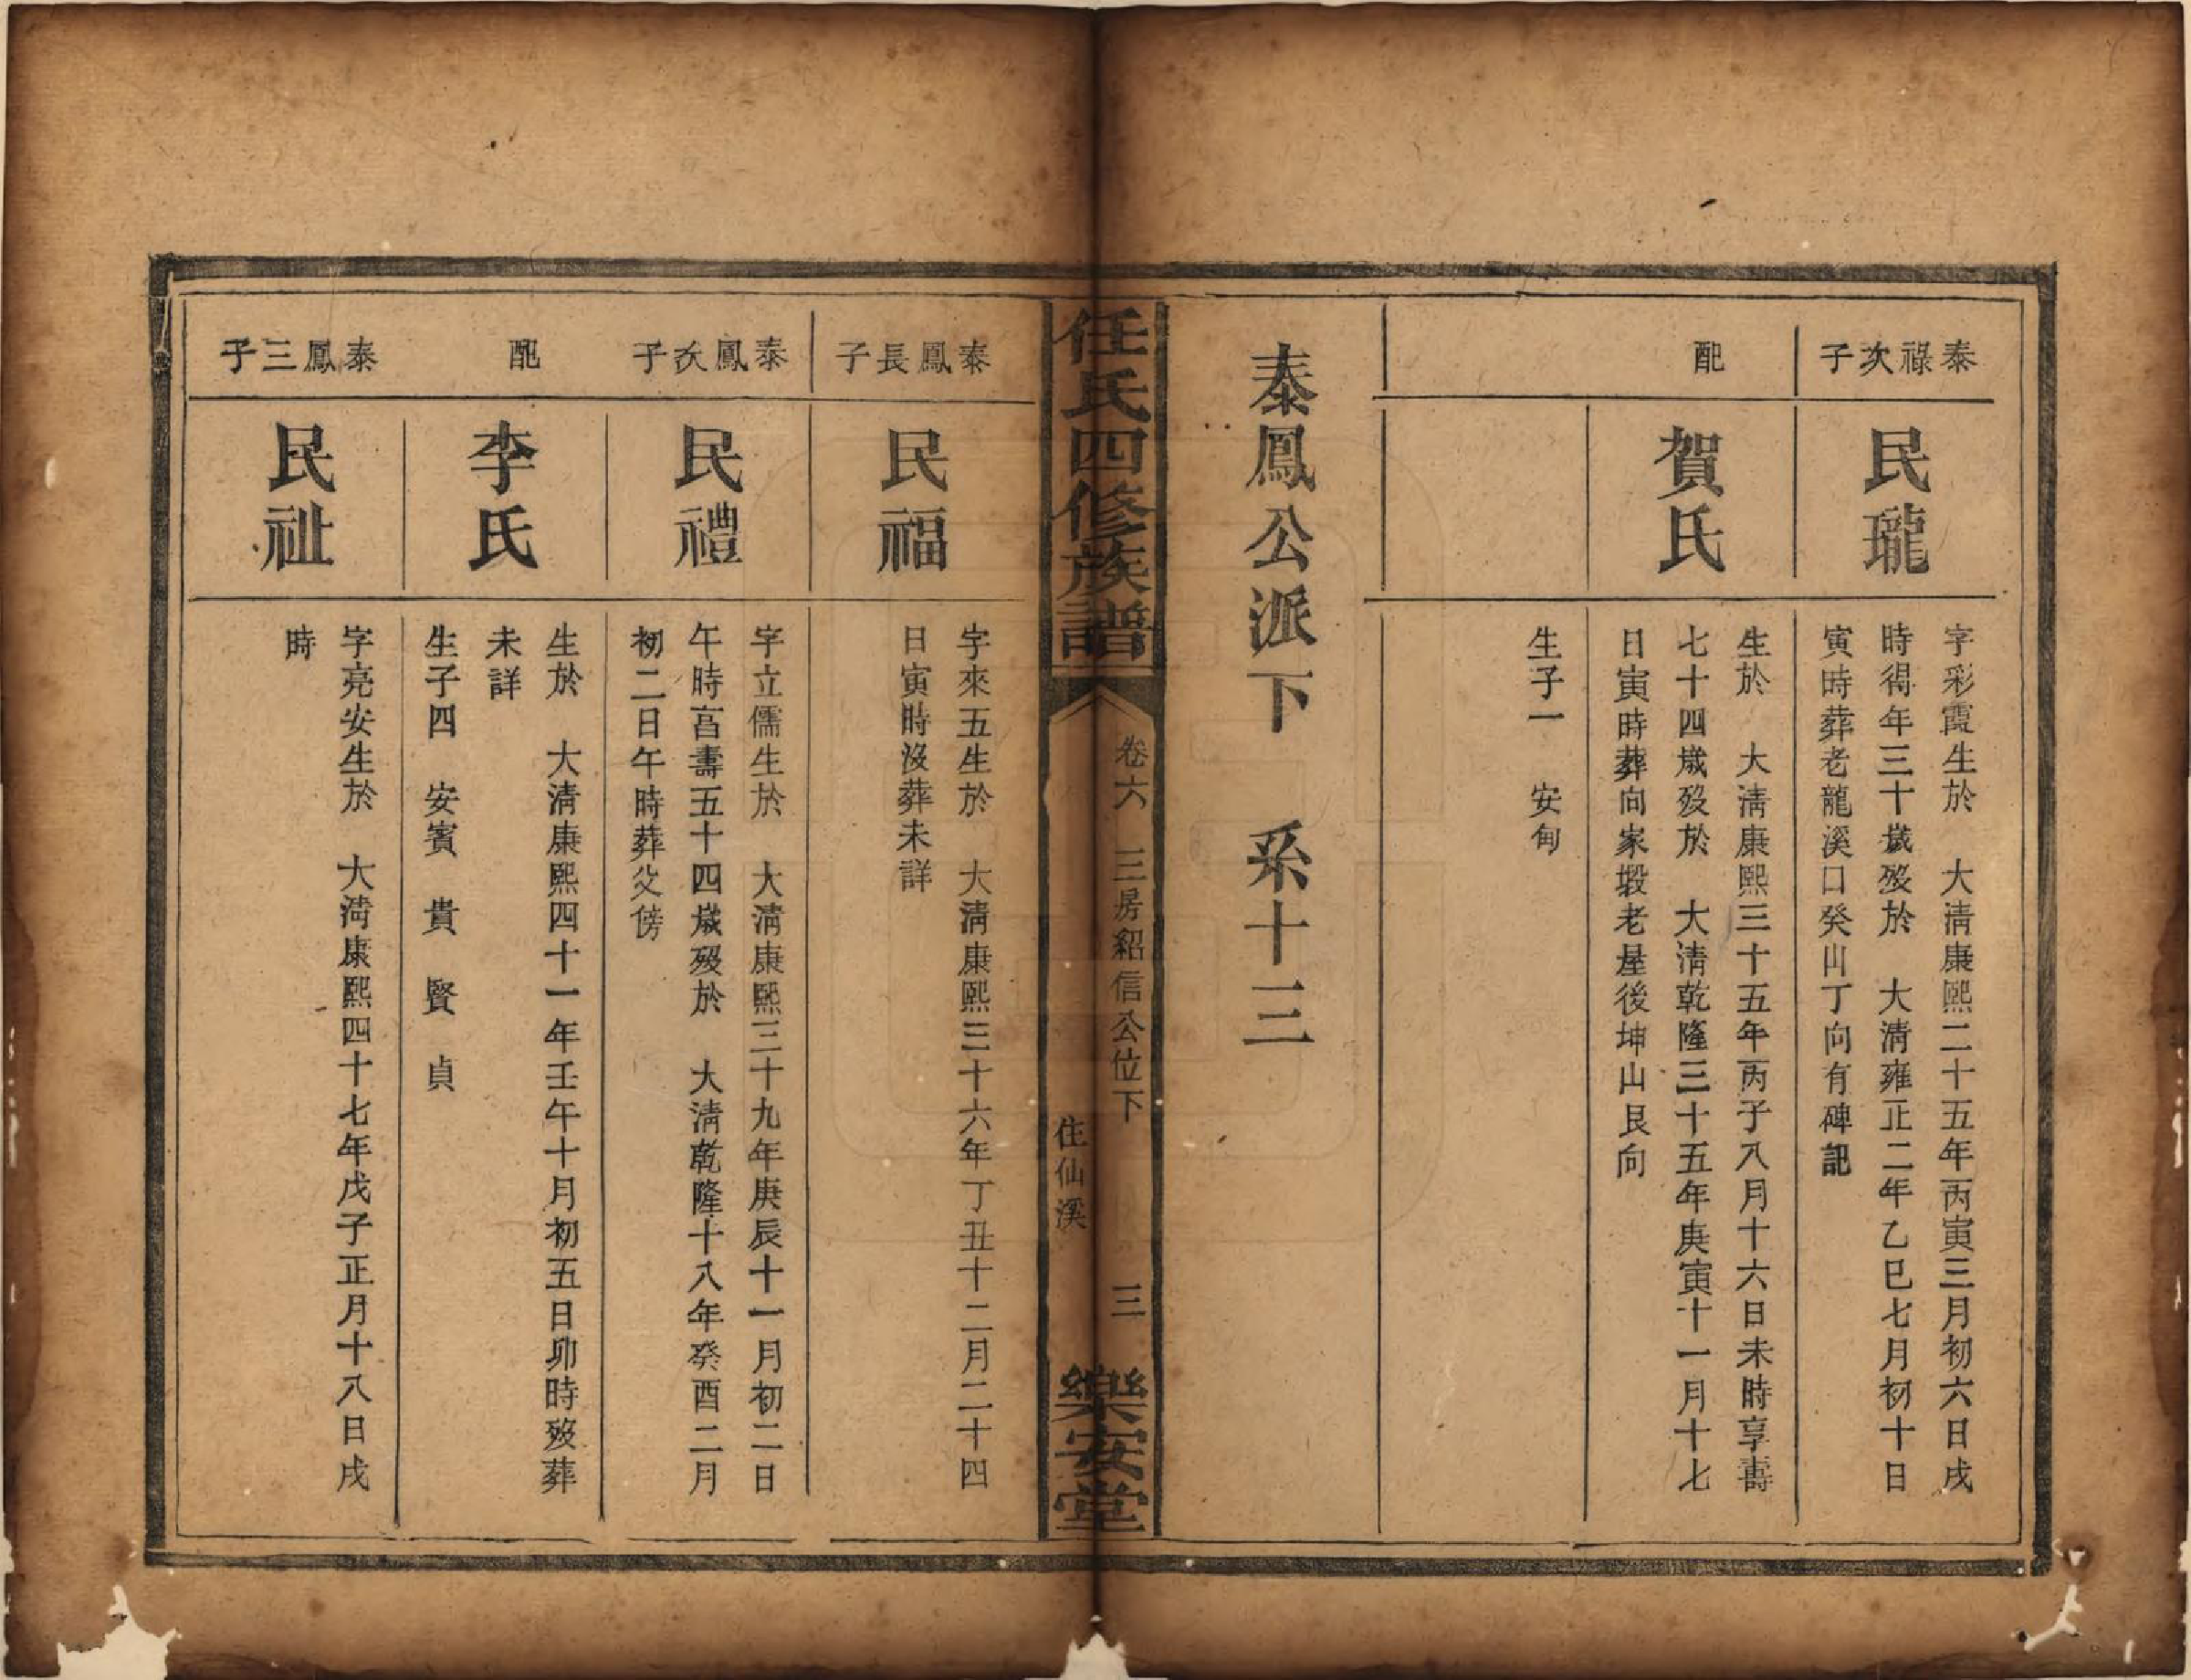 泰祿次子
民瓏
字彩霞生於　大清康熙二十五年丙寅三月初六日戌
時得年三十歲歿於　大清雍正二年乙巳七月初十日
寅時葬老龍溪口癸山丁向有碑記
配
賀氏
生於　大清康熙三十五年丙子八月十六日未時享壽
七十四歲歿於　大清乾隆三十五年庚寅十一月十七
日寅時葬向家塅老屋後坤山艮向
生子一　安甸
泰鳳公派下　系十三
任氏四修族譜
卷六　三房紹信公位下　三
住仙溪
樂安堂
泰鳳長子
民福
字來五生於　大清康熙三十六年丁丑十二月二十四
日寅時沒葬未詳
泰鳳次子
民禮
字立儒生於　大清康熙三十九年庚辰十一月初二日
午時亯壽五十四歲歿於　大清乾隆十八年癸酉二月
初二日午時葬父傍
配
李氏
生於　大清康熙四十一年壬午十月初五日卯時歿葬
未詳
生子四　安賓　貴　賢　貞
泰鳳三子
民祉
字亮安生於　大淸康熙四十七年戊子正月十八日戌
時